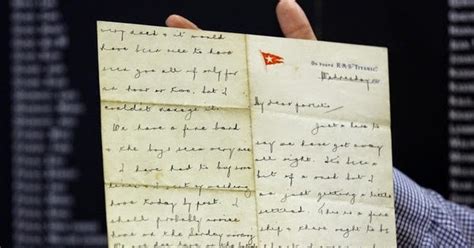 & it would
have been nice to have
seen you all if only for
an hour or two, but I
couldn't manage it.
We have a fine band
& the boys seem very nice
I have had to buy some
linen & I sent my washing
home today by post. I
shall probably arrive
home on the Sunday morning
We are due here on the
On board R.M.S. "TITANIC."
Wednesday
My dear parents,
Just a line to
say we have got away
all right. It's been a
bit of a rush but I
am just getting a little
settled. This is a fine
ship & there ought to be